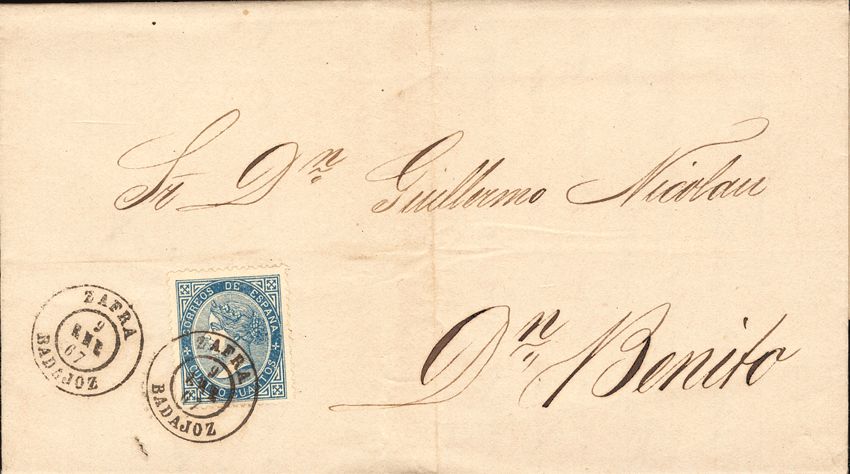 Sr Dn Guillermo Nicolau
Dn Benito
ZAFRA
9
ENE
67
BADAJOZ
CORREOS DE ESPAÑA
CUATRO CUARTOS
ZAFRA
9
ENE
67
BADAJOZ